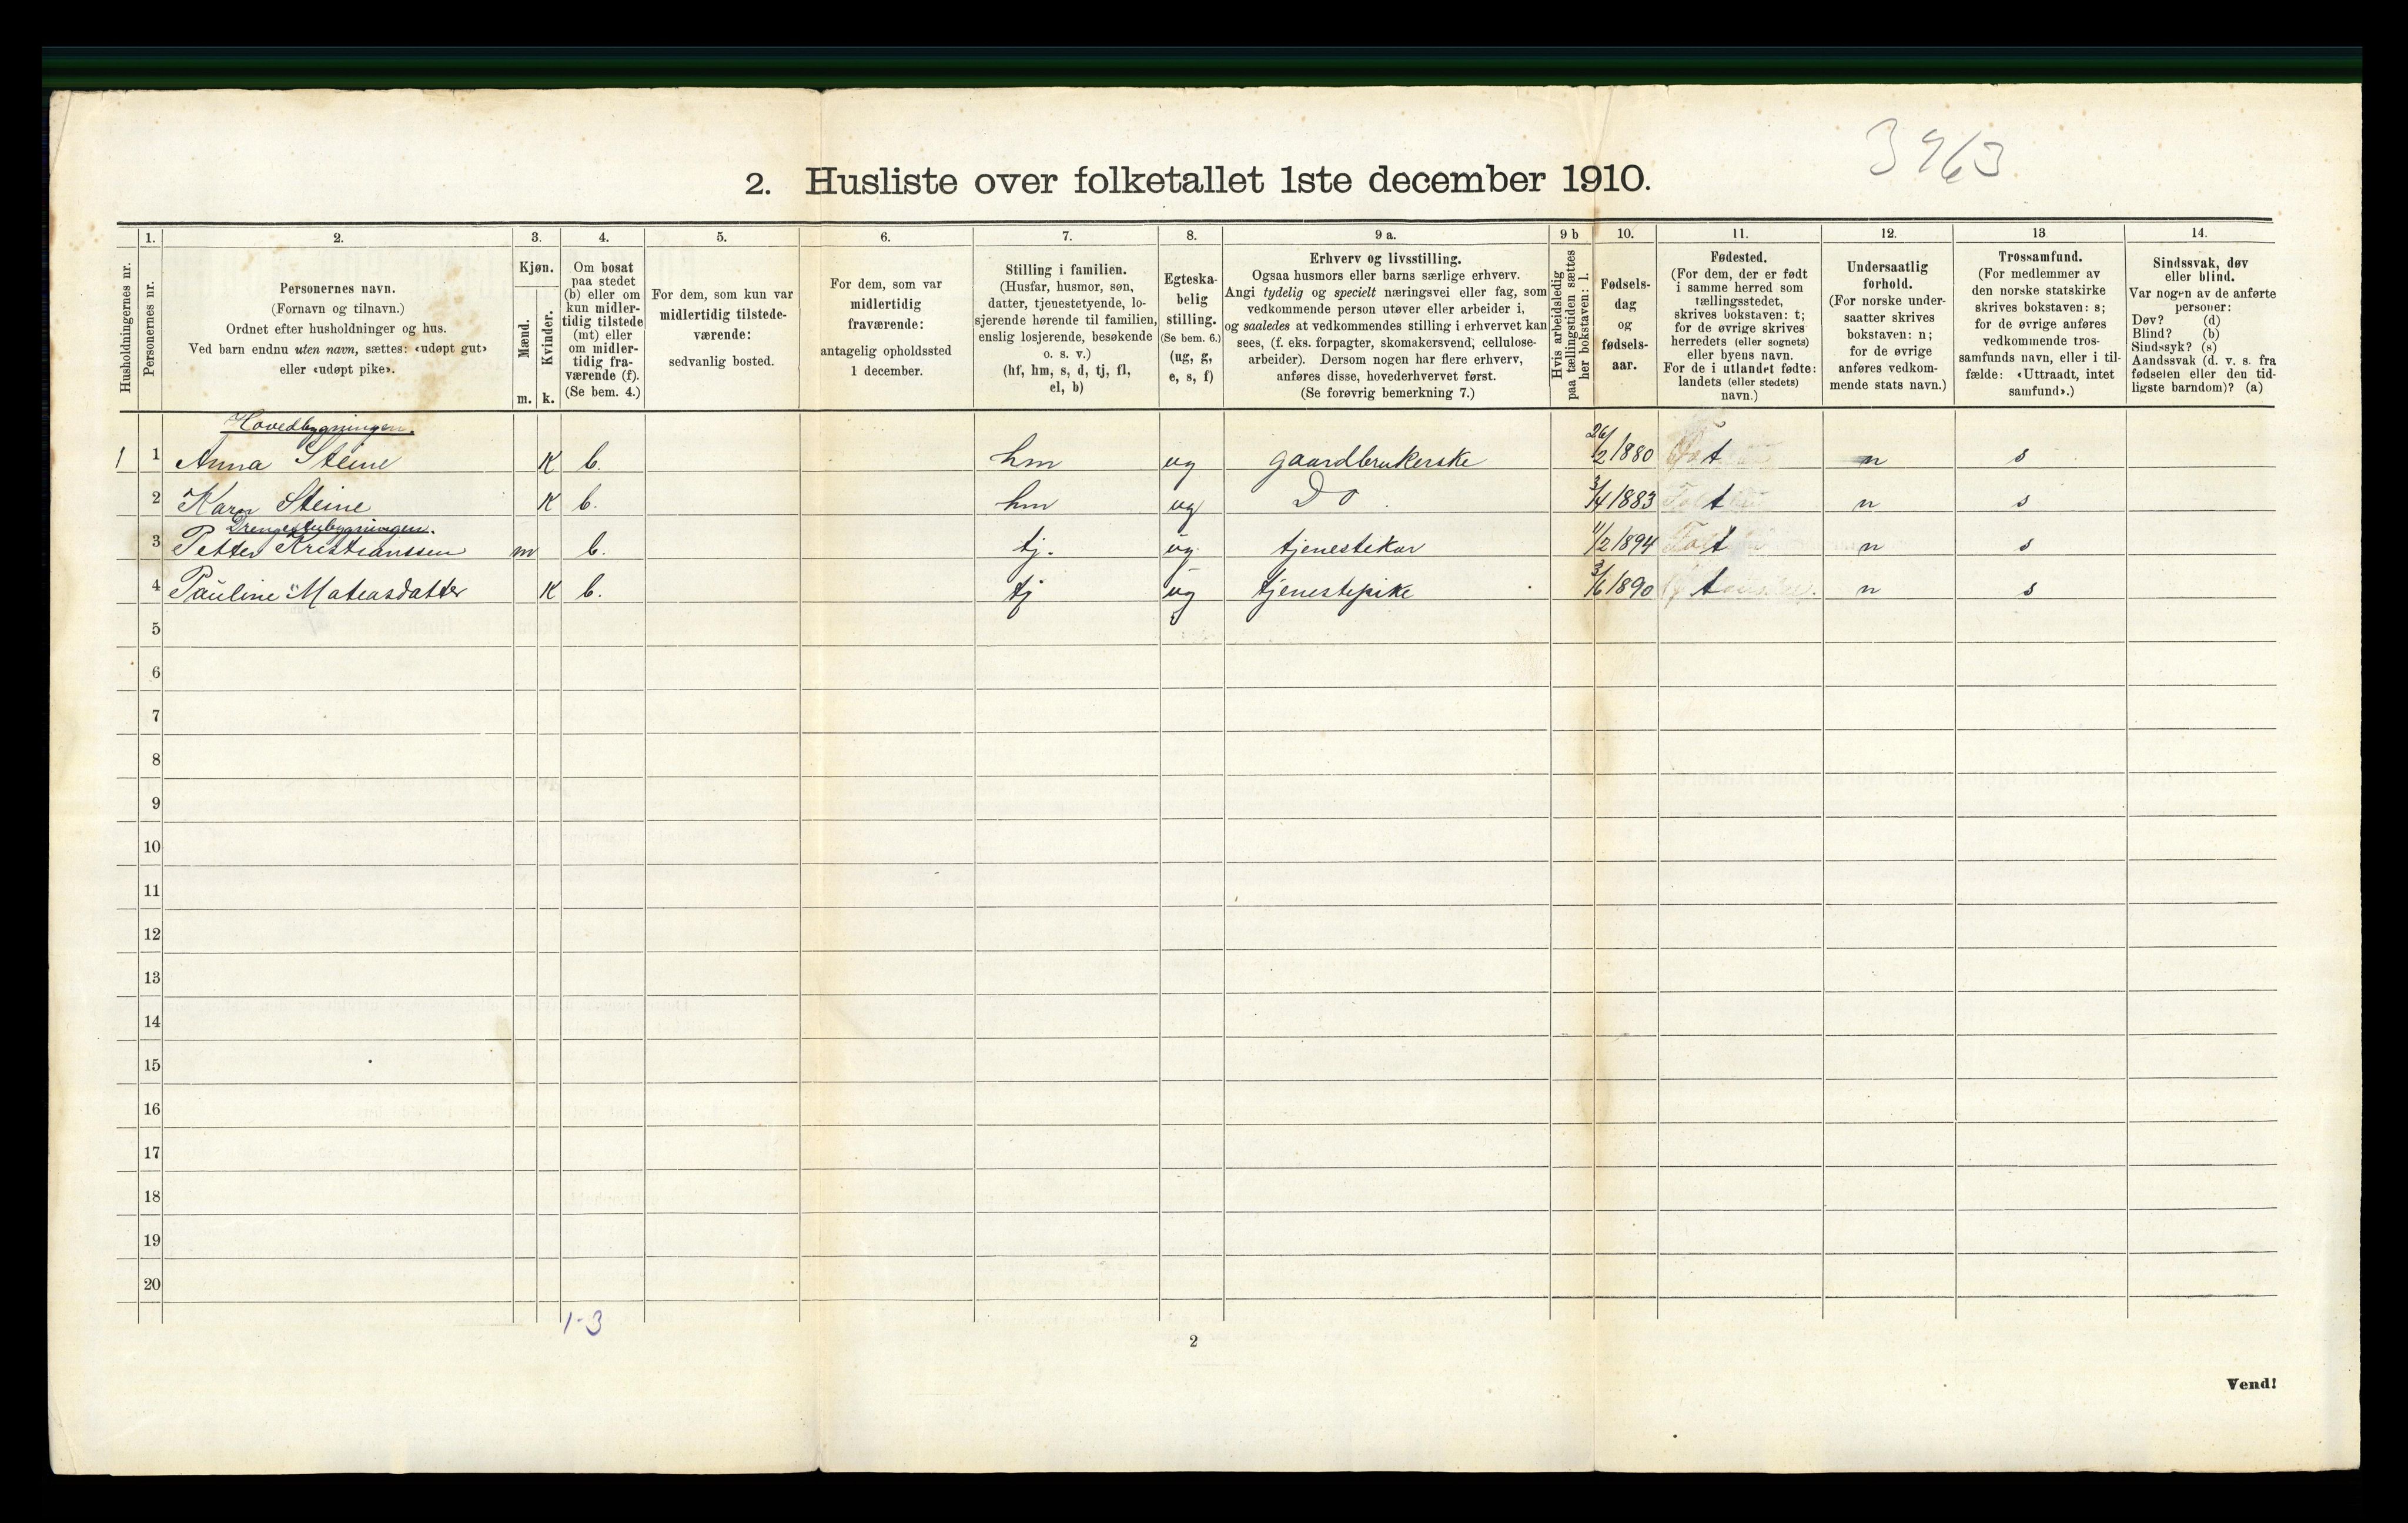 3963
2. Husliste over folketallet 1ste december 1910.
Husholdningernes nr.
1.
Personernes nr.
2.
Personernes navn.
(Fornavn og tilnavn.)
Ordnet efter husholdninger og hus.
Ved barn endnu uten navn, sættes: «udøpt gut»
eller «udøpt pike».
3.
Kjøn.
Mænd.
Kvinder.
m. k.
4.
Om bosat
paa stedet
(b) eller om
kun midler-
tidig tilstede
(mt) eller
om midler-
tidig fra-
værende (f).
(Se bem. 4.)
5.
For dem, som kun var
midlertidig tilstede-
værende:
sedvanlig bosted.
6.
For dem, som var
midlertidig
fraværende:
antagelig opholdssted
1 december.
7.
Stilling i familien.
(Husfar, husmor, søn,
datter, tjenestetyende, lo-
sjerende hørende til familien,
enslig losjerende, besøkende
o. s. v.)
(hf, hm, s, d, tj, fl,
el, b)
8.
Egteska-
belig
stilling.
(Se bem. 6.)
(ug, g,
e, s, f)
9 a.
Erhverv og livsstilling.
Ogsaa husmors eller barns særlige erhverv.
Angi tydelig og specielt næringsvei eller fag, som
vedkommende person utøver eller arbeider i,
og saaledes at vedkommendes stilling i erhvervet kan
sees, (f. eks. forpagter, skomakersvend, cellulose-
arbeider). Dersom nogen har flere erhverv,
anføres disse, hovederhvervet først.
(Se forøvrig bemerkning 7.)
9 b
Hvis arbeidsledig
paa tællingstiden sættes
her bokstaven: l.
10.
Fødsels-
dag
og
fødsels-
aar.
11.
Fødested.
(For dem, der er født
i samme herred som
tællingsstedet,
skrives bokstaven: t;
for de øvrige skrives
herredets (eller sognets)
eller byens navn.
For de i utlandet fødte:
landets (eller stedets)
navn.)
12.
Undersaatlig
forhold.
(For norske under-
saatter skrives
bokstaven: n;
for de øvrige
anføres vedkom-
mende stats navn.)
13
Trossamfund.
(For medlemmer av
den norske statskirke
skrives bokstaven: s;
for de øvrige anføres
vedkommende tros-
samfunds navn, eller i til-
fælde: «Uttraadt, intet
samfund».)
14.
Sindssvak, døv
eller blind.
Var nogen av de anførte
personer:
Døv? (d)
Blind? (b)
Sindssyk? (s)
Aandssvak (d. v. s. fra
fødselen eller den tid-
ligste barndom)? (a)
Hovedbygningen.
1 1 Anna Steine K b. hm ug gaardbrukerske 26/2 1880 t n s
2 Karn Steine K b. hm ug Do. 3/4 1883 t n s
Drengestubygningen.
3 Petter Kristianssen m b. tj. ug. tjenestekar 11/2 1894 t n s
4 Pauline Mateasdatter K b. tj ug tjenestepike 3/6 1890 t n s
5
6
7
8
9
10
11
12
13
14
15
16
17
18
19
20
1-3
2
Vend!